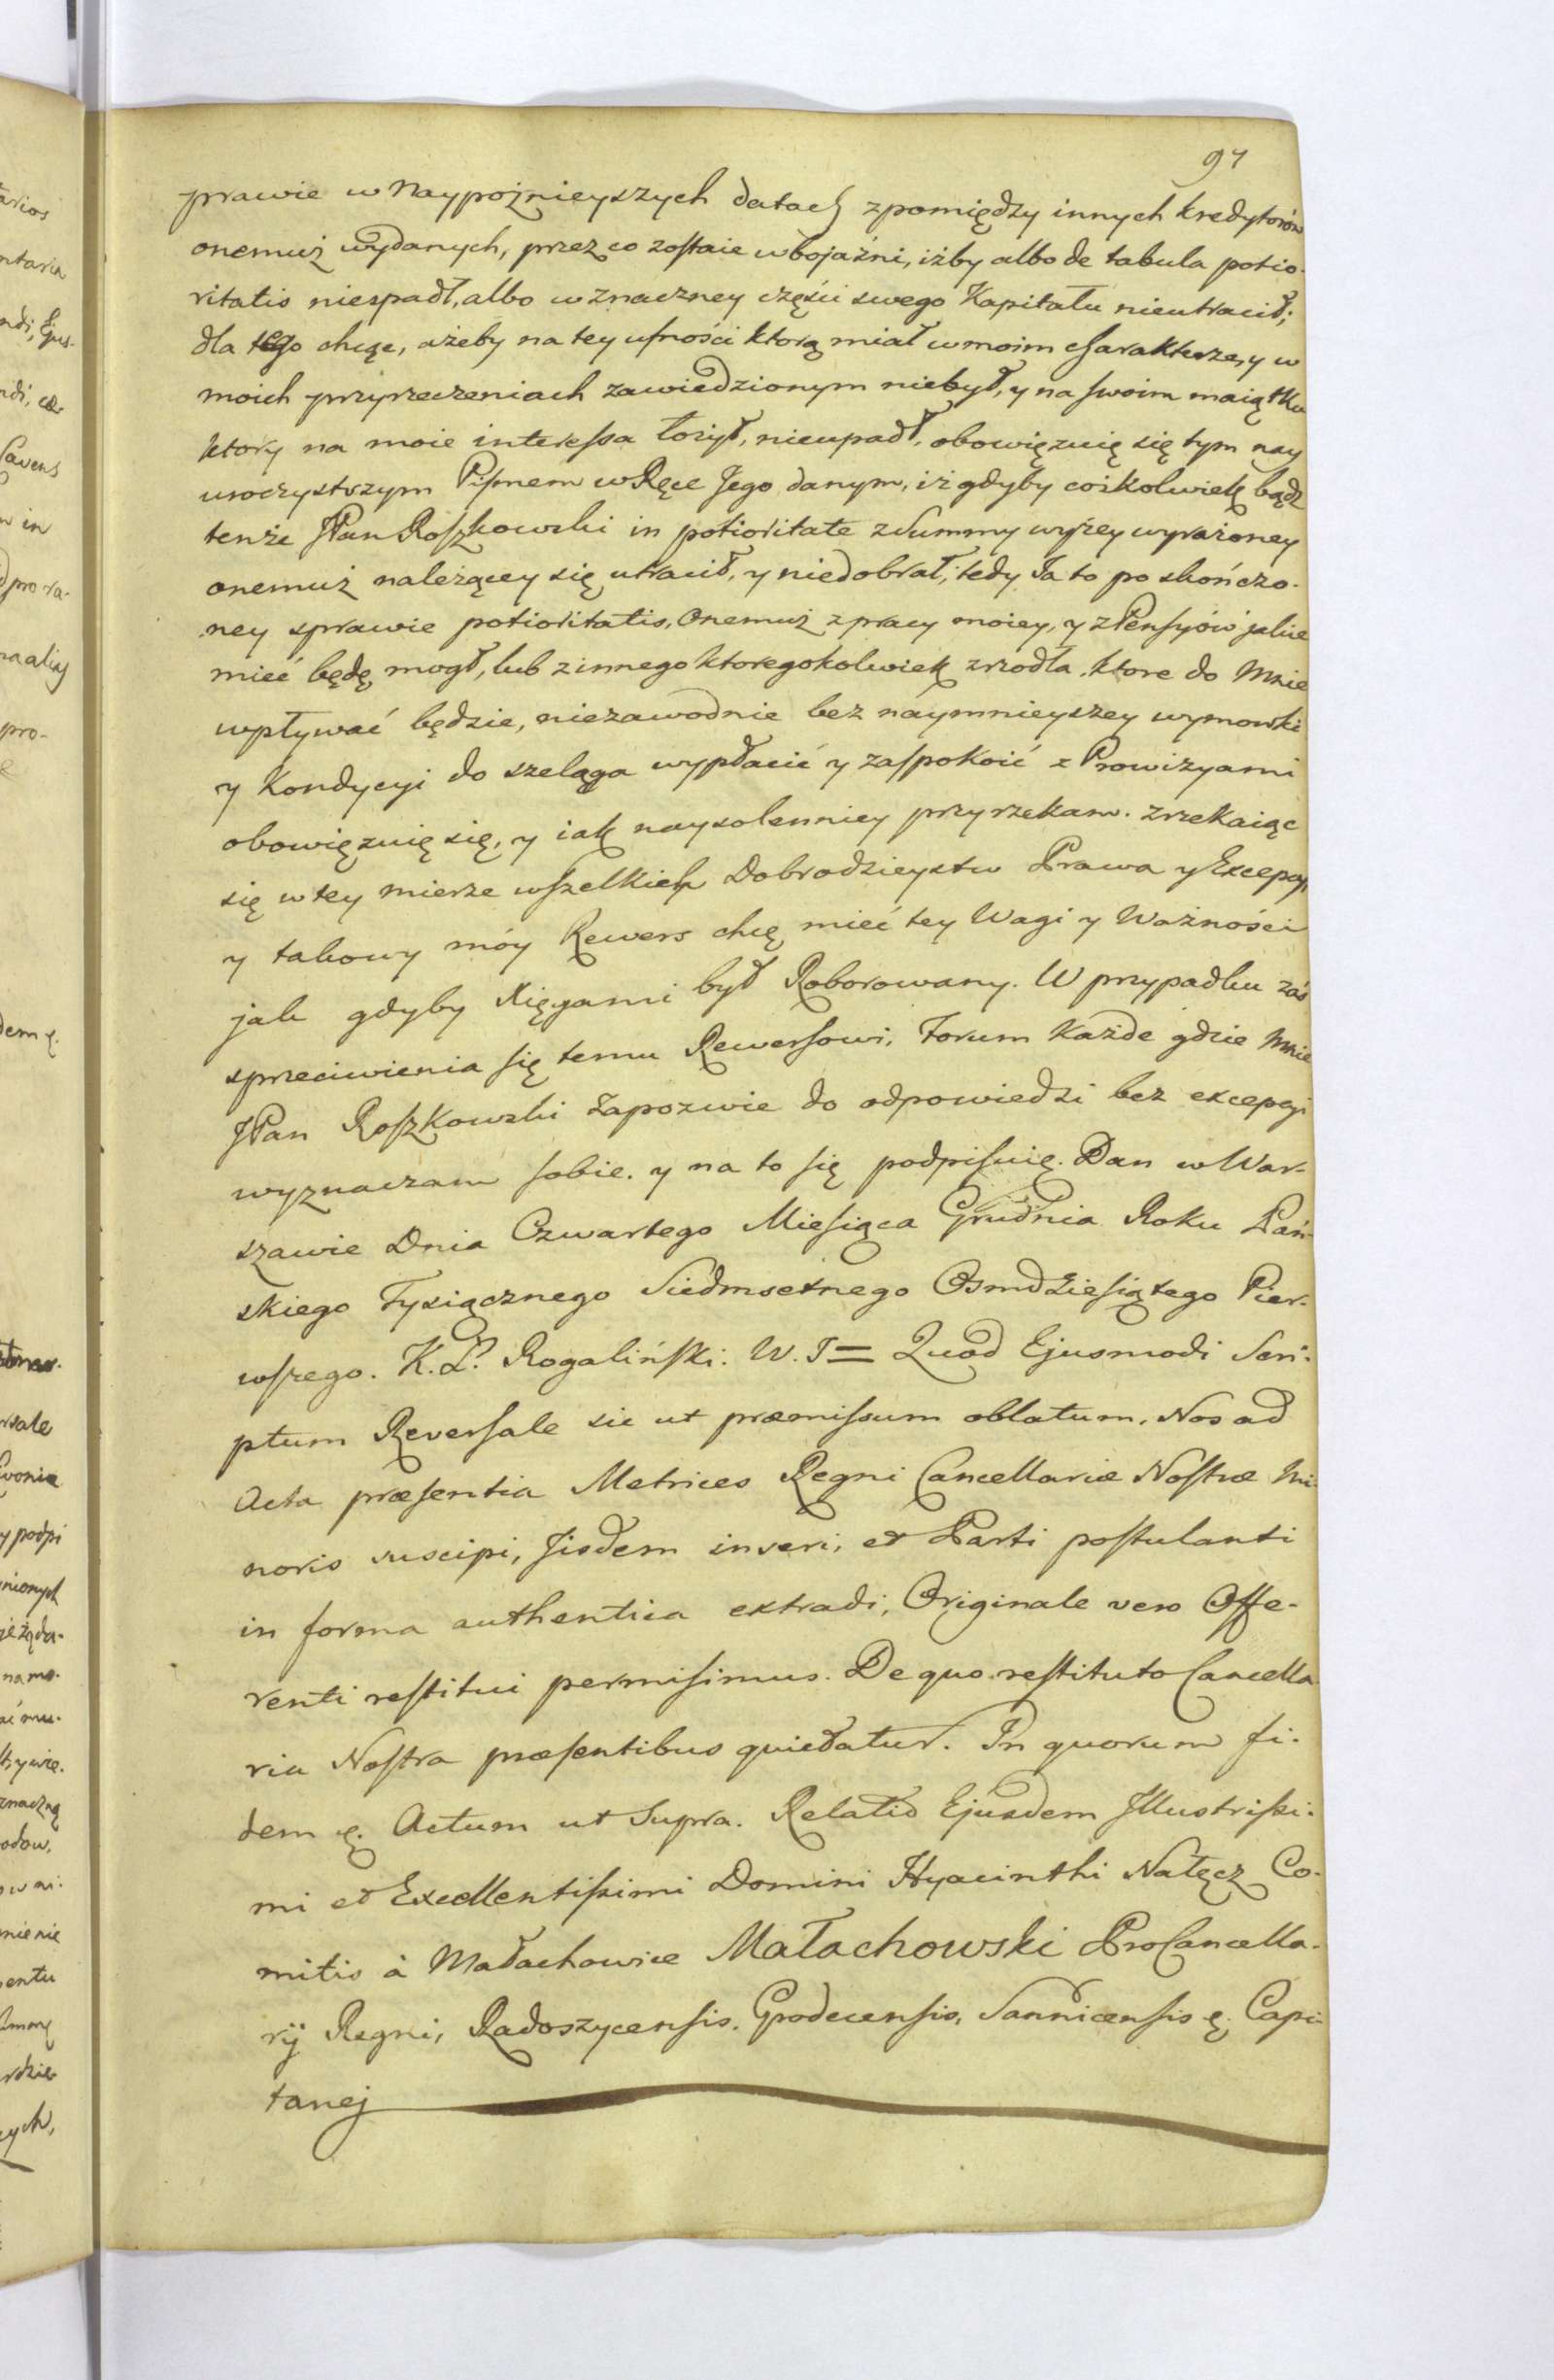 97
prawie w Naypoźnieyszych datach zpomiędzy innych kredytorów
onemuż wydanych, przez co zostaie w bojaźni, iżby albo de tabula potio-
ritatis niespadł, albo w znaczney części swego Kapitału nieutracił;
dla tego chcąc, ażeby na tey ufności ktorą miał w moim charakterze, y w
moich przyrzeczeniach zawiedzionym niebył, y na swoim maiątku
ktory na moie interessa łożył, nieupadł, obowięzuię się tym nay
uroczystszym Pismem w Ręce Jego danym, iż gdyby cośkolwiek bądź
tenże JPan Roszkowski in potioritate z Summy wyżey wyrażoney
onemuż należącey się utracił, y niedobrał, tedy Ja to po skończo-
ney sprawie potioritatis, Onemuż z pracy moiey, y z Pensyów jakie
mieć będę mogł, lub z innego ktoregokolwiek zrzodła, ktore do Mnie
wpływać będzie, niezawodnie bez náymnieyszey wymowki
y Kondycyi do szeląga wypłacić y zaspokoić z Prowizyami
obowięzuię się, y iak naysolenniey przyrzekam. zrzekaiąc
się w tey mierze wszelkich Dobrodzieystw Prawa y Excepcyi,
y takowy móy Rewers chcę mieć tey Wagi y Ważności
jak gdyby Xięgami był Roborowany. W przypadku zaś
sprzeciwienia się temu Rewersowi, Forum Każde gdzie Mnie
JPan Roszkowski Zapozwie do odpowiedzi bez excepcyi
wyznaczam sobie. y na to się podpisuię. Dan w War-
szawie Dnia Czwartego Miesiąca Grudnia Roku Pań-
skiego Tysiącznego Siedmsetnego Osmdziesiątego Pier-
wszego. K. Rogaliński. W. I = Quod Ejusmodi Scri-
ptum Reversale sic ut præmissum oblatum, Nos ad
Acta præsentia Metrices Regni Cancellariæ Nostræ Mi-
noris suscipi, Jisdem inseri, et Parti postulanti
in forma authentica extradi, Originale vero Offe-
renti restitui permisimus. De quo restituto Cancella
ria Nostra præsentibus quietatur. In quorum fi-
dem &. Actum ut Supra. Relatio Ejusdem Illustrissi-
mi et Excellentissimi Domini Hyacinthi Nałęcz Co-
mitis à Małachowice Małachowski ProCancella-
rij Regni, Radoszycensis, Grodecensis, Sannicensis &. Capi-
tanej